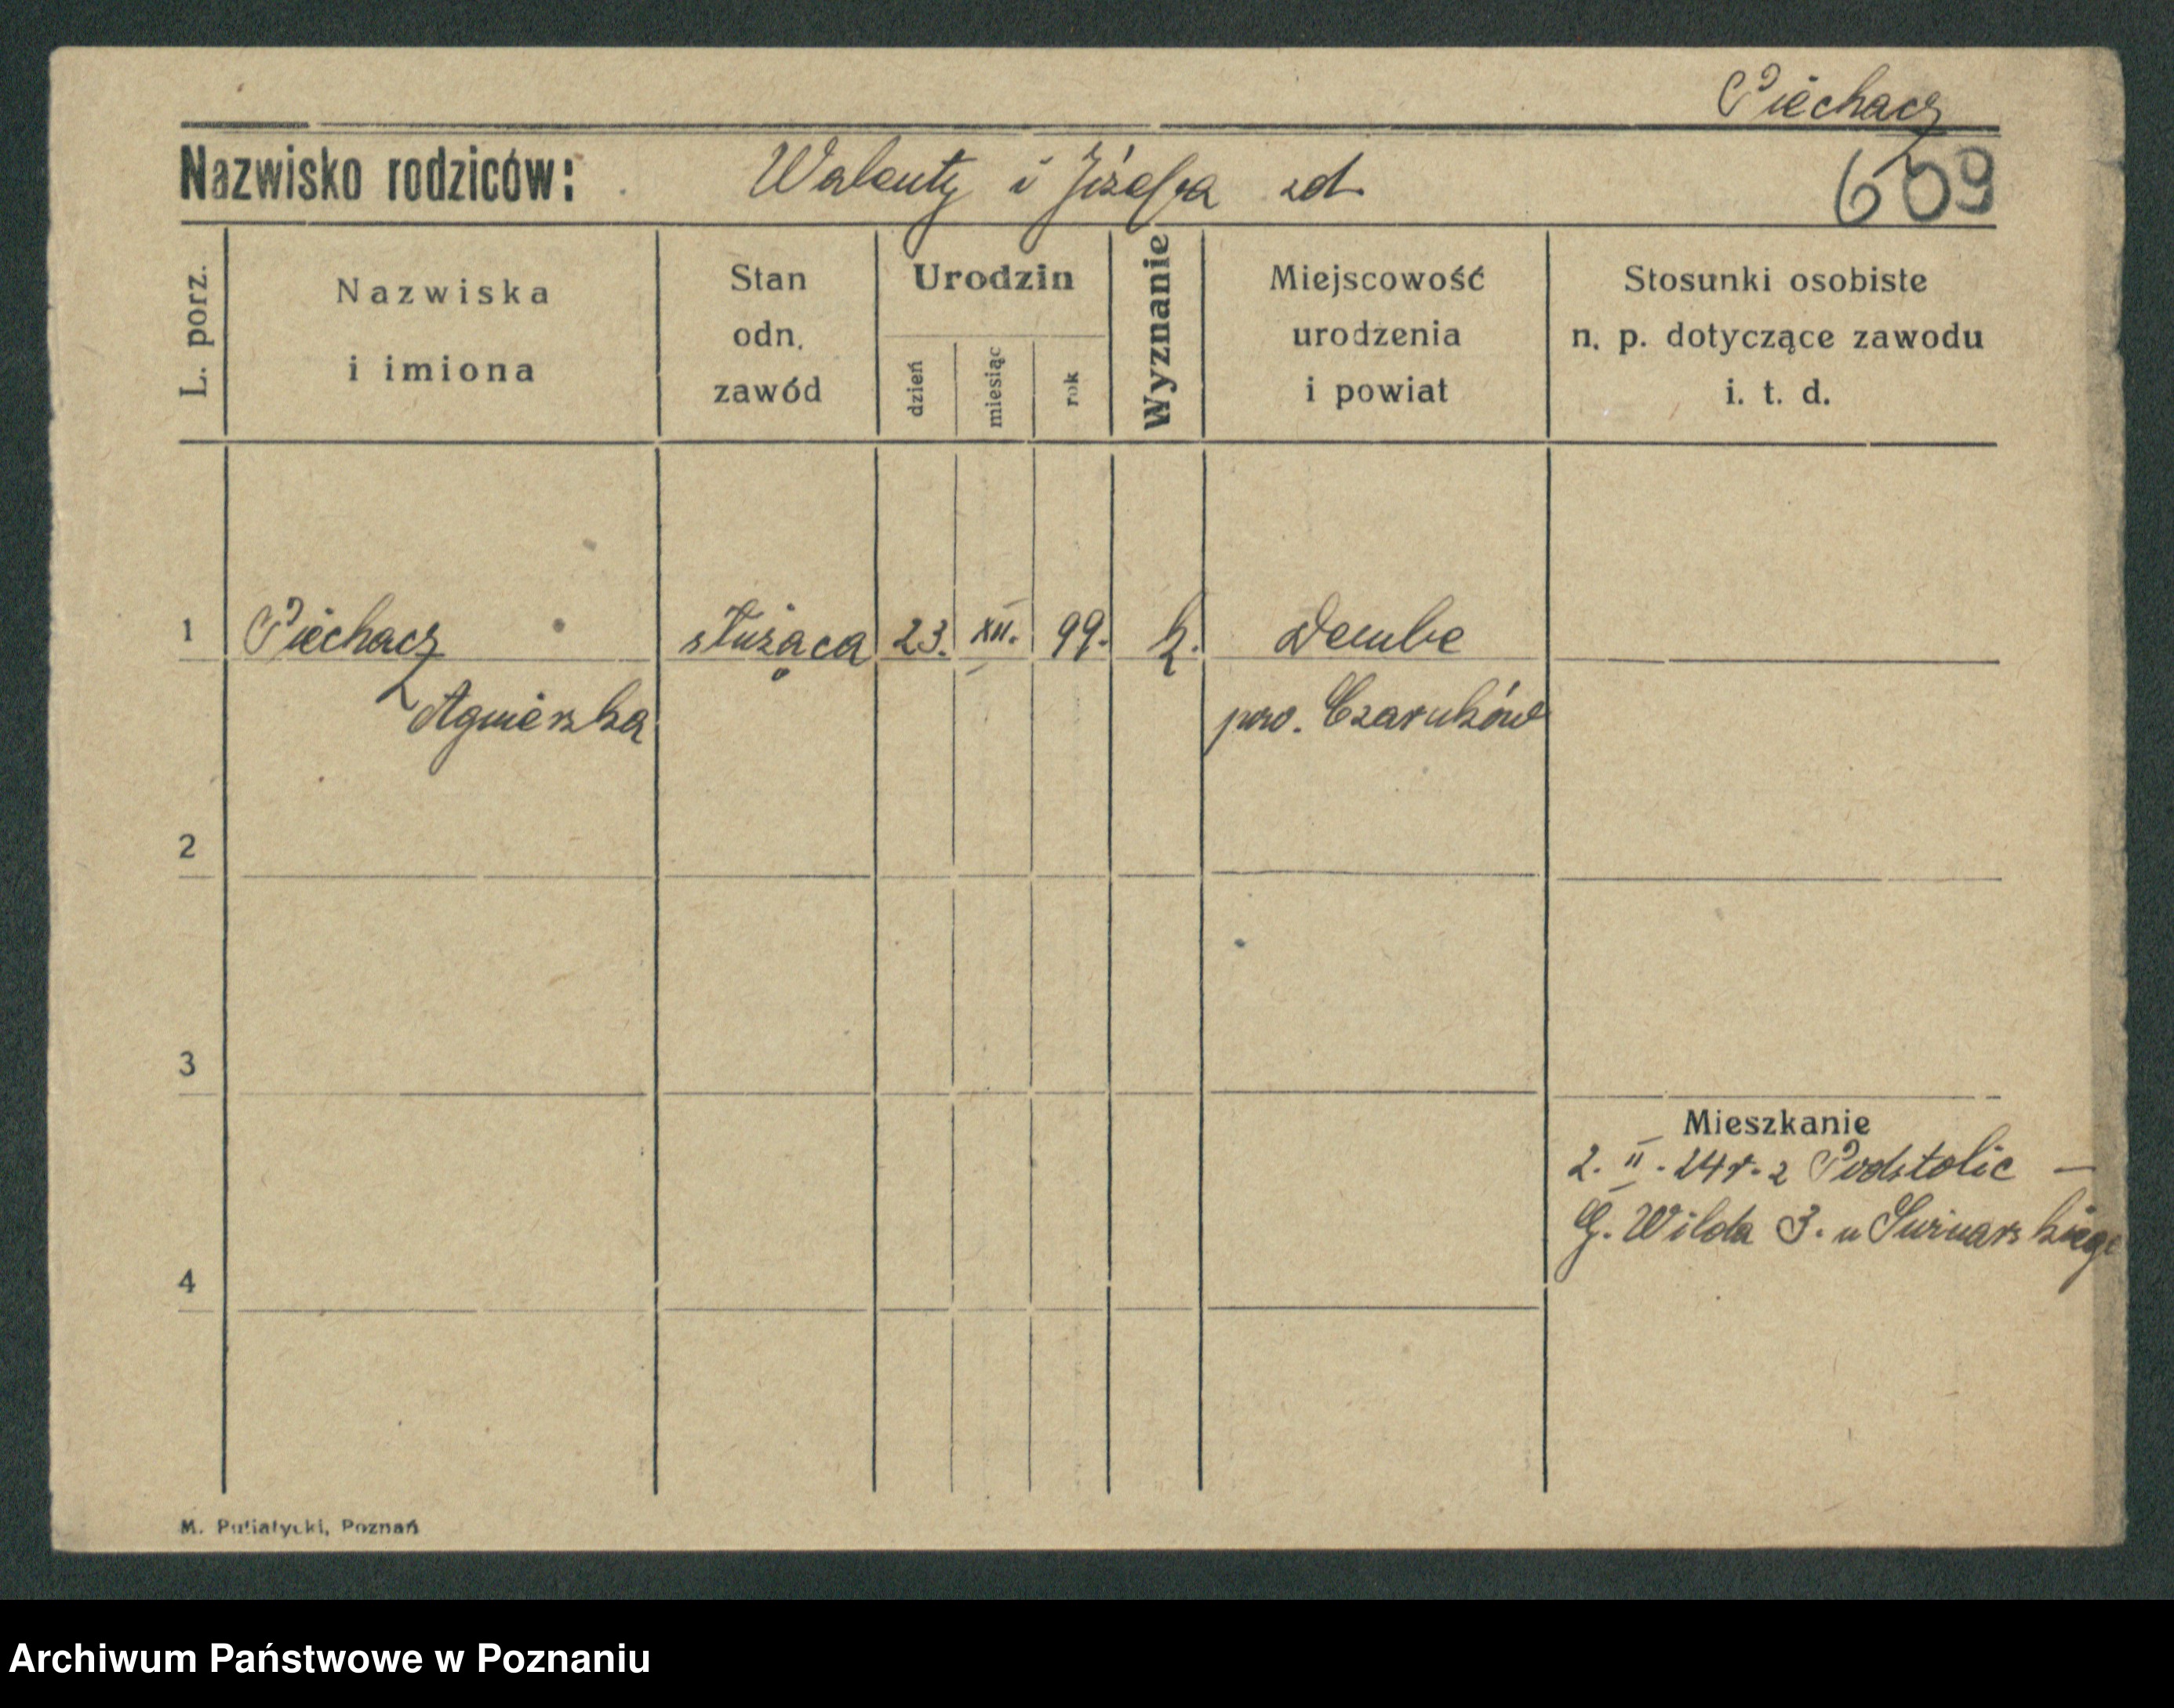 Piechacz
Nazwisko rodziców: Walenty i Józefa zd.
609
L. porz.
Nazwiska
i imiona
Stan
odn.
zawód
Urodzin
dzień
miesiąc
rok
Wyznanie
Miejscowość
urodzenia
i powiat
Stosunki osobiste
n. p. dotyczące zawodu
i. t. d.
1 Piechacz służąca 23. XII. 99. k. Dembe
Agnieszka pow. Czarnków
2
3
Mieszkanie
2. II. 24 r. z Podstolic —
G. Wilda 3. u
4
M. Putiatycki, Poznań
Archiwum Państwowe w Poznaniu